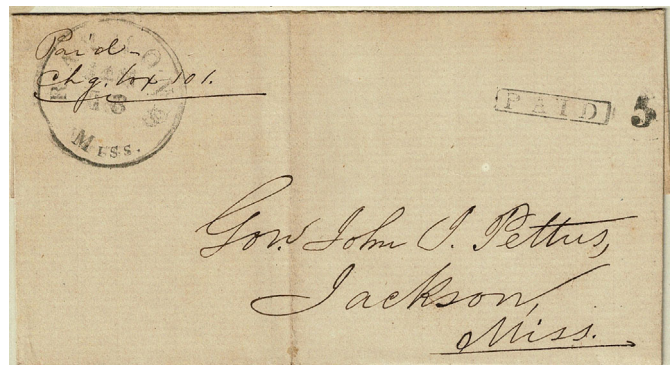 Paid
Chg. box 101.
18
MISS.
PAID 5
Gov. John J. Pettus,
Jackson,
Miss.